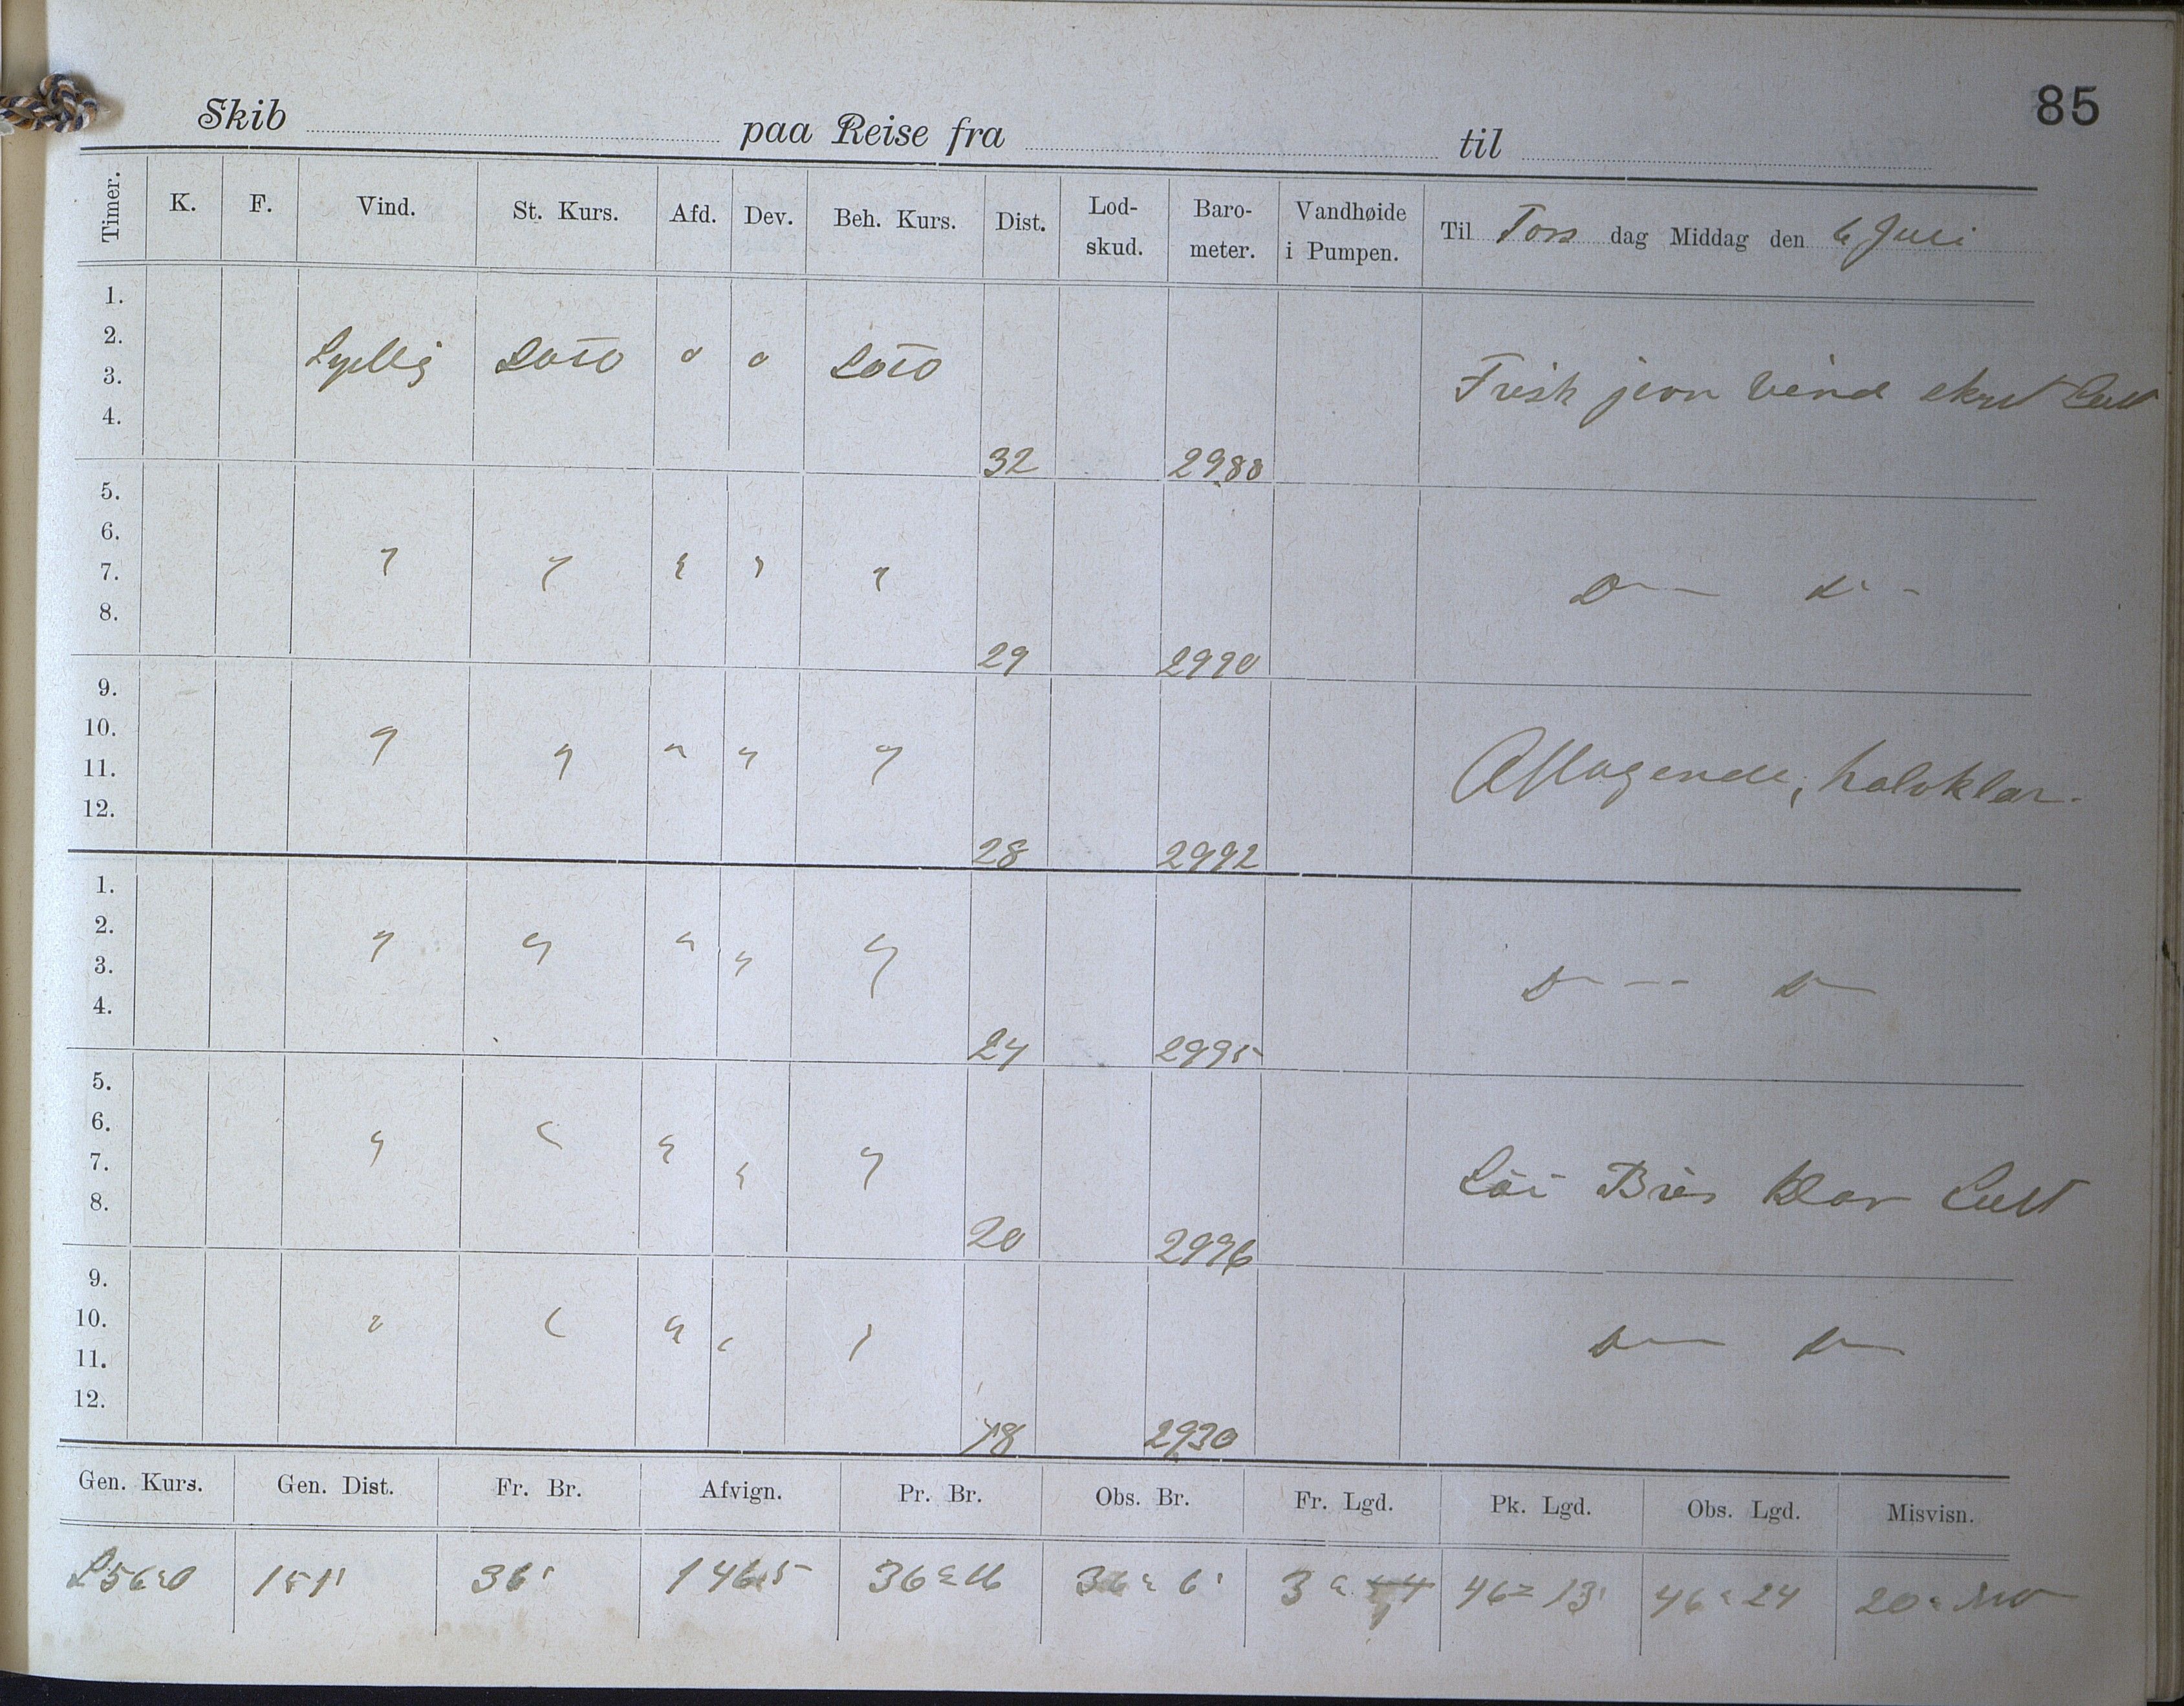 85
Skib paa Reise fra til
Timer. K. F. Vind. St. Kurs. Afd. Dev. Beh. Kurs. Dist. Lod-skud. Baro-meter. Vandhøide i Pumpen. Til Tors dag Middag den 6 Juli
1.
2.
Sydlig o o
3.
Frisk jevn Vind Luft
4.
32 2988
5.
6.
7.
" " " " " D— D—
8.
29 2990
9.
10.
" " " " "
11.
Aftagende, halvklar.
12.
28 2992
1.
2.
" " " " "
3.
D— D—
4.
24 2995
5.
6.
" " " " "
7.
Bris klar Luft
8.
20 2996
9.
10.
" " " " "
11.
D— D—
12.
18 2930
Gen. Kurs. Gen. Dist. Fr. Br. Afvign. Pr. Br. Obs. Br. Fr. Lgd. Pk. Lgd. Obs. Lgd. Misvisn.
151' 36' 146.5 36° 16 36° 6' 3° 46° 13' 46° 24 20°